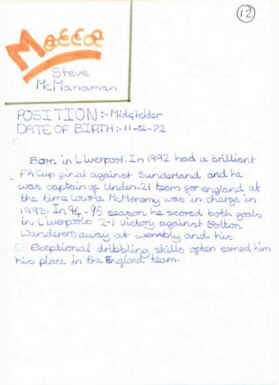 12
Macca
Steve
McManaman
POSITION:- Midfielder
DATE OF BIRTH:- 11-02-72
Born in Liverpool. In 1992 had a brilliant
FA Cup final against Sunderland and he
was captain of Under-21 team for england at
the time Lawrie McMenemy was in charge in
1993. In 94-95 season he scored both goals
in Liverpools 2-1 victory against Bolton
Wanderers away at wembly and his
Exceptional dribbling skills often earned him
his place in the England team.